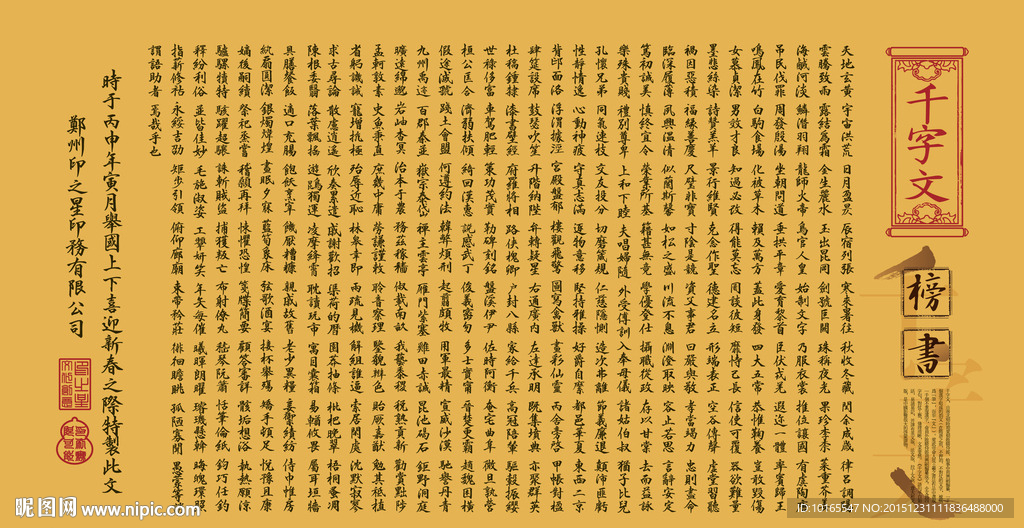 千字文
榜書
天地玄黃宇宙洪荒日月盈昃辰宿列張寒來暑往秋收冬藏閏余成歲律呂調
雲騰致雨露結為霜金生麗水玉出崑岡劍號巨闕珠稱夜光果珍李柰菜重芥
海鹹河淡鱗潛羽翔龍師火帝鳥官人皇始制文字乃服衣裳推位讓國有虞陶
吊民伐罪周發殷湯坐朝問道垂拱平章愛育黎首臣伏戎羌遐邇一體率賓歸王
鳴鳳在竹白駒食場化被草木賴及萬方蓋此身發四大五常恭惟鞠養豈敢毀傷
女慕貞潔男效才良知過必改得能莫忘罔談彼短靡恃己長信使可覆器欲難量
墨悲絲染詩贊羔羊景行維賢克念作聖德建名立形端表正空谷傳聲虛堂習聽
禍因惡積福緣善慶尺璧非寶寸陰是競資父事君曰嚴與敬孝當竭力忠則盡命
臨深履薄夙興溫凊似蘭斯馨如松之盛川流不息淵澄取映容止若思言辭安定
篤初誠美慎終宜令榮業所基籍甚無竟學優登仕攝職從政存以甘棠去而益詠
樂殊貴賤禮別尊卑上和下睦夫唱婦隨外受傅訓入奉母儀諸姑伯叔猶子比兒
孔懷兄弟同氣連枝交友投分切磨箴規仁慈隱惻造次弗離節義廉退顛沛匪虧
性靜情逸心動神疲守真志滿逐物意移堅持雅操好爵自縻都邑華夏東西二京
背邙面洛浮渭據涇宮殿盤郁樓觀飛驚圖寫禽獸畫彩仙靈丙舍旁啓甲帳對楹
肆筵設席鼓瑟吹笙升階納陛弁轉疑星右通廣內左達承明既集墳典亦聚群英
杜稿鍾隸漆書壁經府羅將相路俠槐卿戶封八縣家給千兵高冠陪輦驅轂振纓
世祿侈富車駕肥輕策功茂實勒碑刻銘磻溪伊尹佐時阿衡奄宅曲阜微旦孰營
桓公匡合濟弱扶傾綺回漢惠說感武丁俊義密勿多士實甯晉楚更霸趙魏困橫
假途滅虢踐土會盟何遵約法韓弊煩刑起翦頗牧用軍最精宣威沙漠馳譽丹青
九州禹跡百郡秦並嶽宗泰岱禪主雲亭雁門紫塞雞田赤誠昆池碣石鉅野洞庭
曠遠綿邈岩岫杳冥治本于農務茲稼穡俶載南畝我藝黍稷稅熟貢新勸賞黜陟
孟軻敦素史魚秉直庶幾中庸勞謙謹敕聆音察理鑒貌辨色貽厥嘉猷勉其祗植
省躬譏誡寵增抗極殆辱近恥林皋幸即兩疏見機解組誰逼索居閑處沉默寂寥
求古尋論散慮逍遙欣奏累遣慼謝歡招渠荷的歷園莽抽條枇杷晚翠梧桐蚤凋
陳根委翳落葉飄搖遊鵾獨運凌摩絳霄耽讀玩市寓目囊箱易輶攸畏屬耳垣牆
具膳餐飯適口充腸飽飫烹宰饑厭糟糠親戚故舊老少異糧妾御績紡侍巾帷房
紈扇圓潔銀燭煒煌晝眠夕寐藍筍象床弦歌酒宴接杯舉殤矯手頓足悅豫且康
嫡後嗣續祭祀烝嘗稽顙再拜悚懼恐惶箋牒簡要顧答審詳骸垢想浴執熱願涼
驢騾犢特駭躍超驤誅斬賊盜捕獲叛亡布射僚丸嵇琴阮簫恬筆倫紙鈞巧任釣
釋紛利俗並皆佳妙毛施淑姿工顰妍笑年矢每催曦暉朗曜璿璣懸斡晦魄環照
指薪修祜永綏吉劭矩步引領俯仰廊廟束帶矜莊徘徊瞻眺孤陋寡聞愚蒙等
謂語助者焉哉乎也
時于丙申年寅月舉國上下喜迎新春之際特製此文
鄭州印之星印務有限公司
昵图网 www.nipic.com
ID:10165547 NO:20151231111836488000